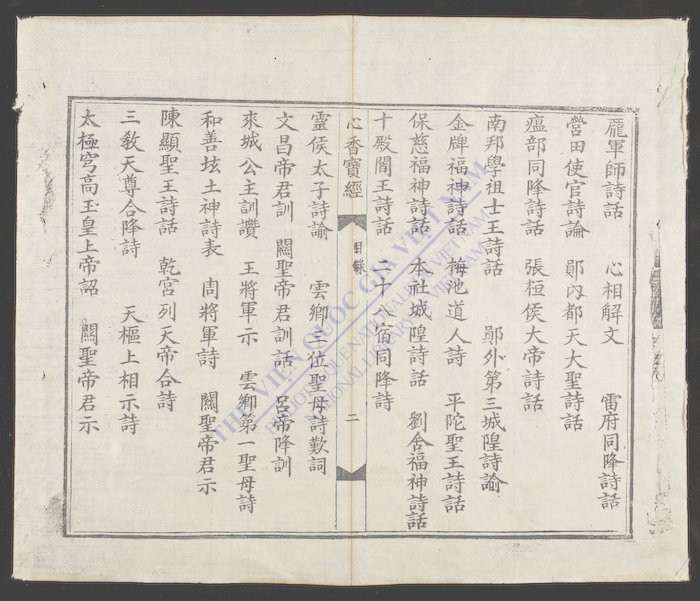 龐軍師詩話 心相解文 雷府同降詩話
營田使官詩論 鄖內都天大聖詩話
瘟部同降詩話 張桓侯大帝詩話
南邦學祖士王詩話 鄖外第三城隍詩諭
金牌福神詩話 梅池道人詩 平陀聖王詩話
保慈福神詩話 本社城隍詩話 劉舍福神詩話
十殿閻王詩話 二十八宿同降詩
心香寶經 目錄 二
靈侯太子詩諭 雲鄉三位聖母詩歎詞
文昌帝君訓 關聖帝君訓話 呂帝降訓
來城公主訓讚 王將軍示 雲鄉第一聖母詩
和善坊土神詩表 周將軍詩 關聖帝君示
陳顯聖王詩話 乾宮列天帝合詩
三教天尊合降詩 天樞上相示詩
太極穹高玉皇上帝詔 關聖帝君示
THƯ VIỆN QUỐC GIA VIỆT NAM
BIBLIOTHEQUE NATIONALE DU VIETNAM
NATIONAL LIBRARY OF VIETNAM